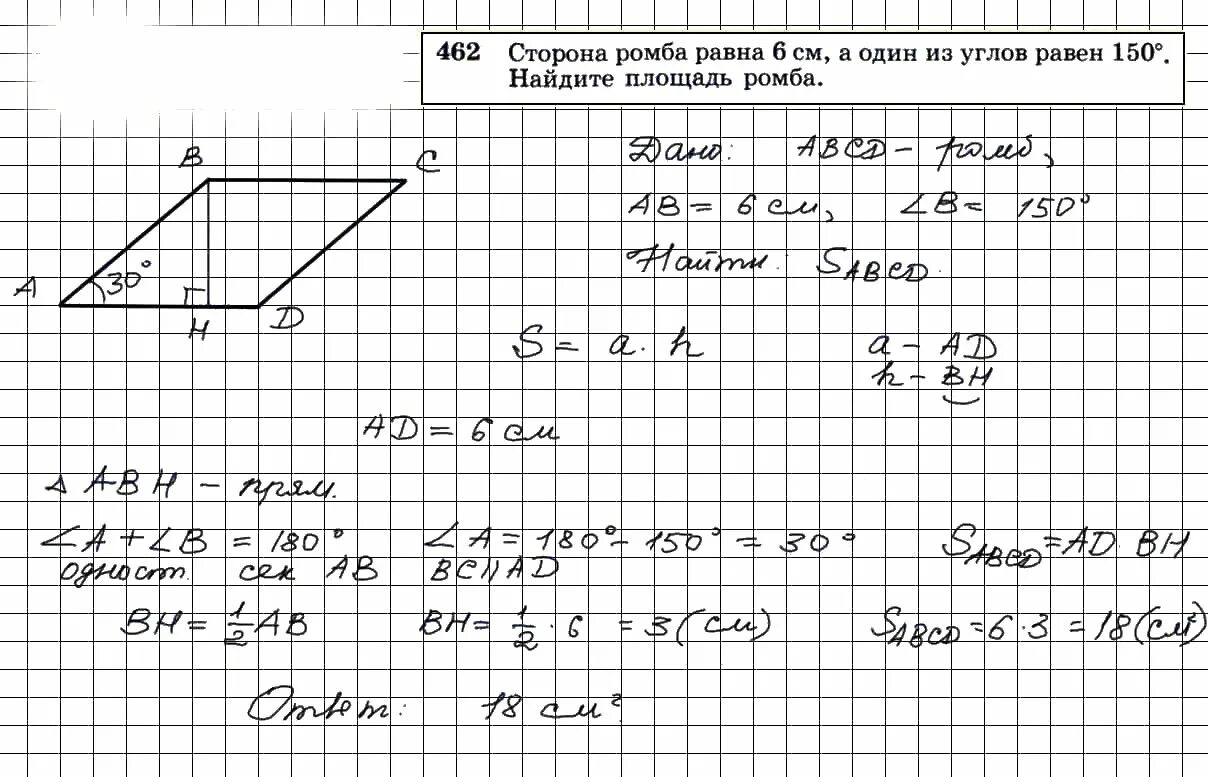 462 Сторона ромба равна 6 см, а один из углов равен 150°.
Найдите площадь ромба.
B C
A 30°
H D
Дано: ABCD – ромб,
AB = 6 см, ∠B = 150°
Найти: S ABCD.
S = a · h
a – AD
h – BH
AD = 6 см
△ ABH – прям.
∠A + ∠B = 180° ∠A = 180° – 150° = 30° S ABCD = AD · BH
одност. сек AB BC || AD
BH = 1/2 AB BH = 1/2 · 6 = 3 (см) S ABCD = 6 · 3 = 18 (см²)
Ответ: 18 см²